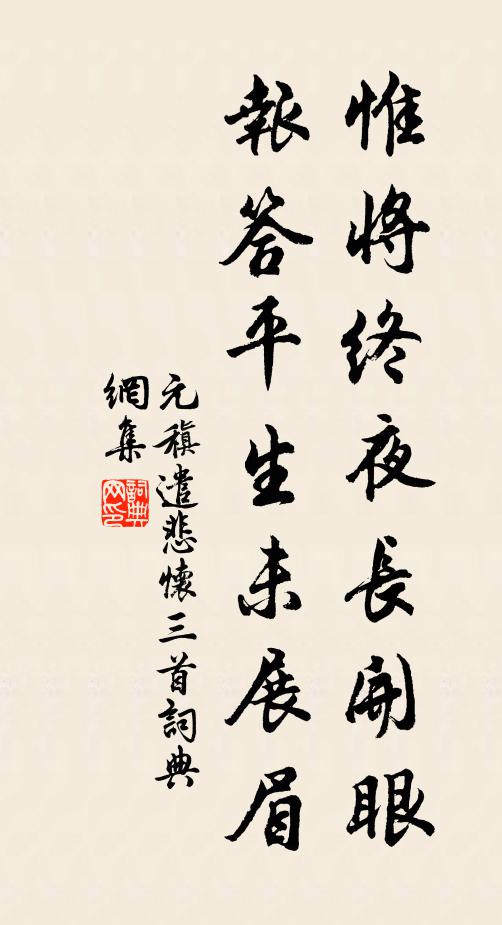 惟將終夜長開眼
報答平生未展眉
元稹遣悲懷三首詞典
網集
詞典
網印